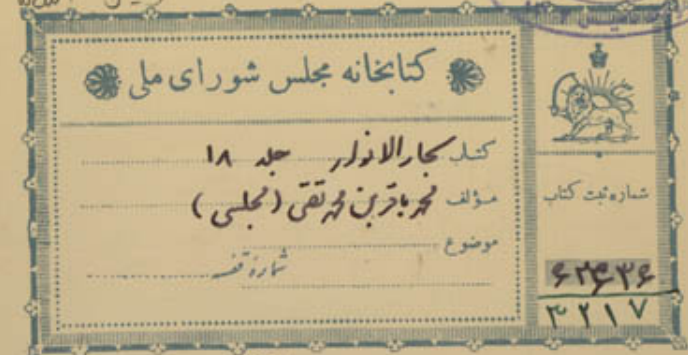 کتابخانه مجلس شورای ملی
کتاب بحارالانوار جلد ۱۸
مؤلف محمد باقر بن محمد تقی (مجلسی)
موضوع
شماره قفسه
شماره ثبت کتاب
۶۳۶۳۶
۳۲۱۷